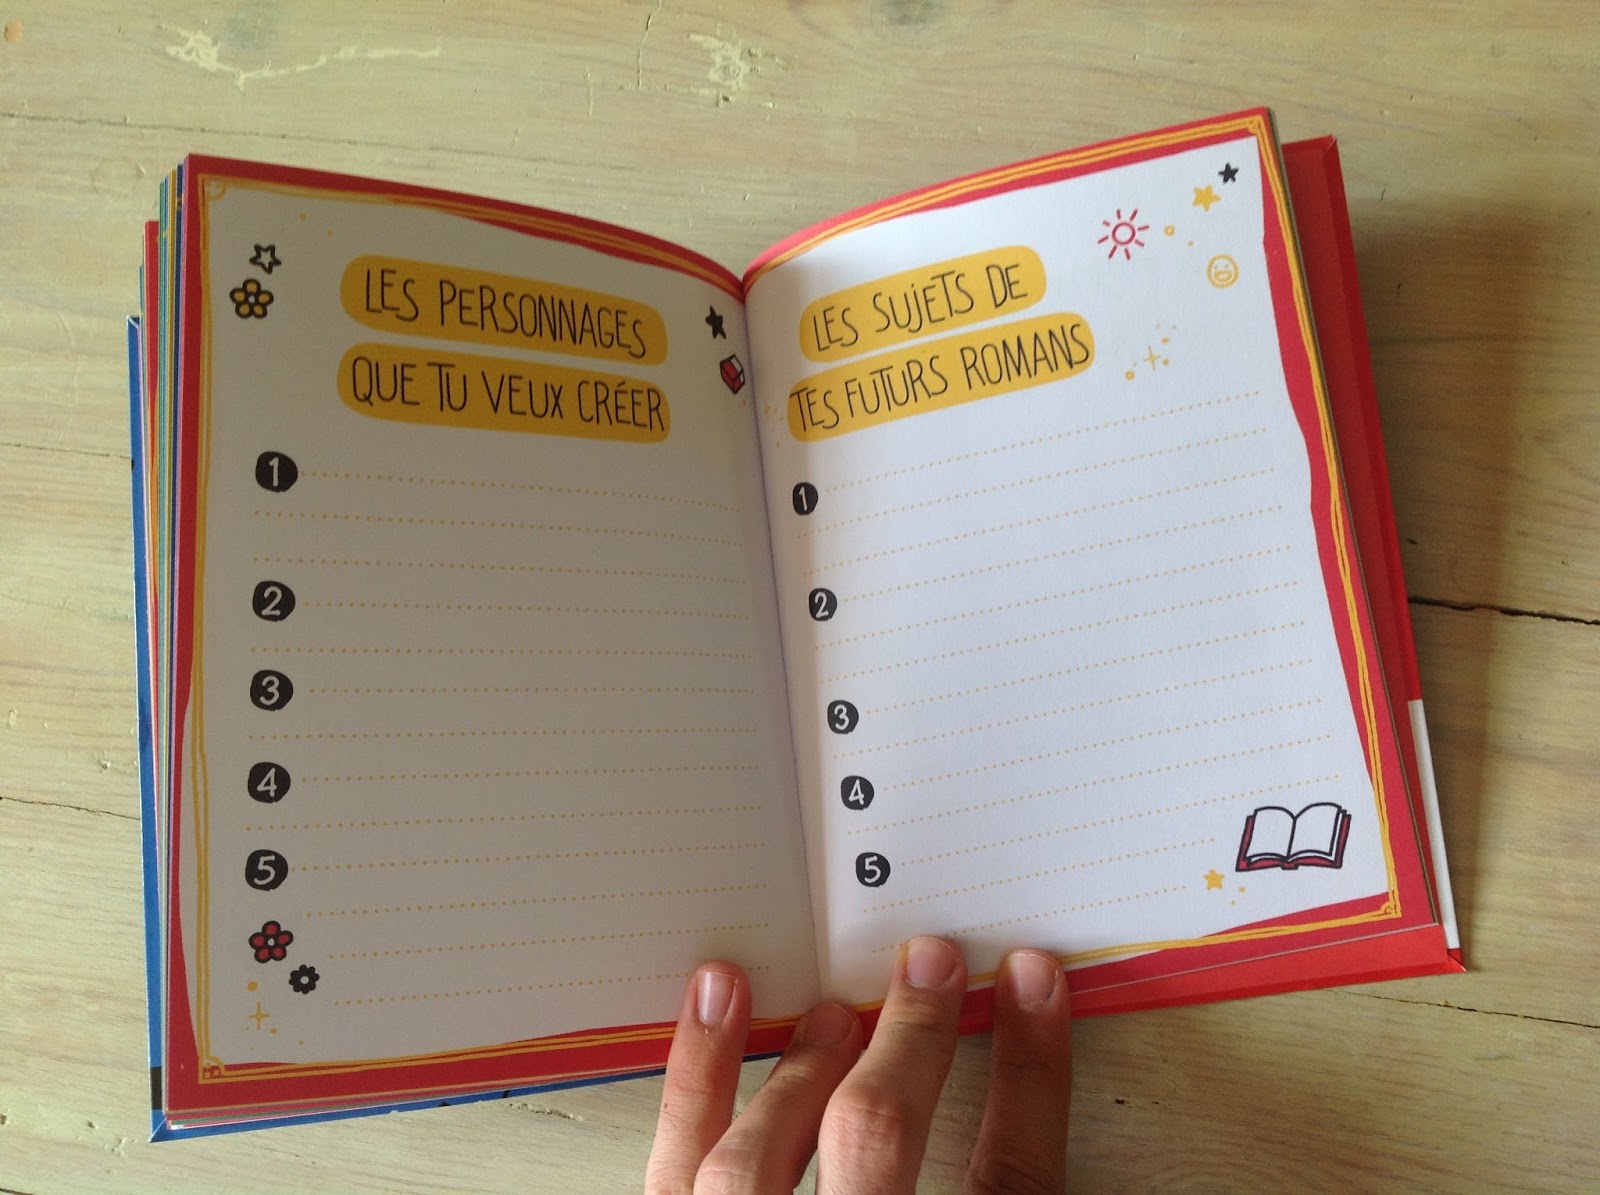 LES PERSONNAGES
QUE TU VEUX CRÉER
1
2
3
4
5
LES SUJETS DE
TES FUTURS ROMANS
1
2
3
4
5